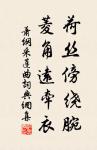 荷丝傍绕腕
菱角远牵衣
萧纲采莲曲词典网集